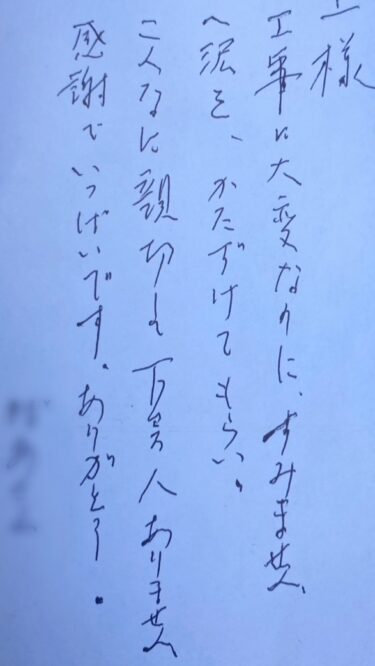 様
工事に大変なのに、すみません、
へ沢を、かたずけてもらい。
こんなに親切し下さる人ありません
感謝でいっぱいです。ありがとう.